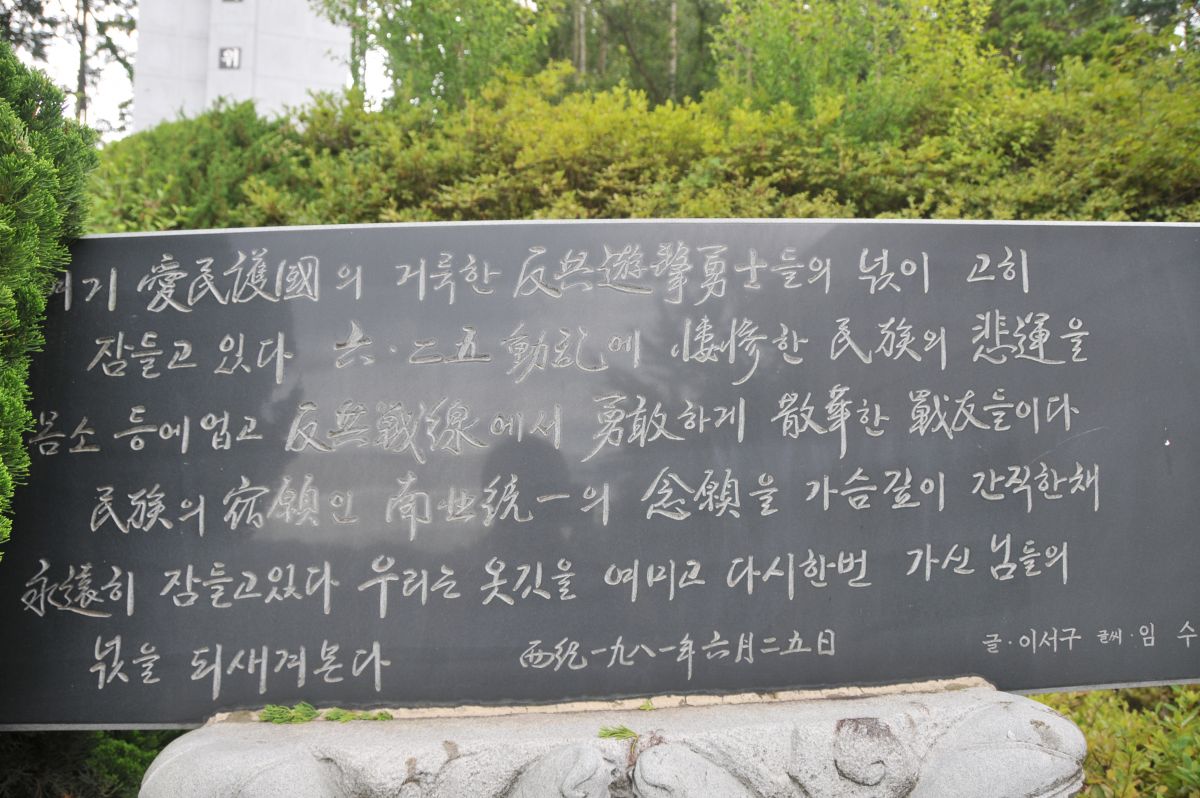 위
여기 愛民護國의 거룩한 反共遊擊勇士들의 넋이 고히
잠들고 있다 六·二五動乱에 悽慘한 民族의 悲運을
몸소 등에 업고 反共戰線에서 勇敢하게 散華한 戰友들이다
民族의 宿願인 南北統一의 念願을 가슴깊이 간직한채
永遠히 잠들고있다 우리는 옷깃을 여미고 다시한번 가신 님들의
넋을 되새겨본다
西紀一九八一年六月二五日
글·이서구 글씨·임 수